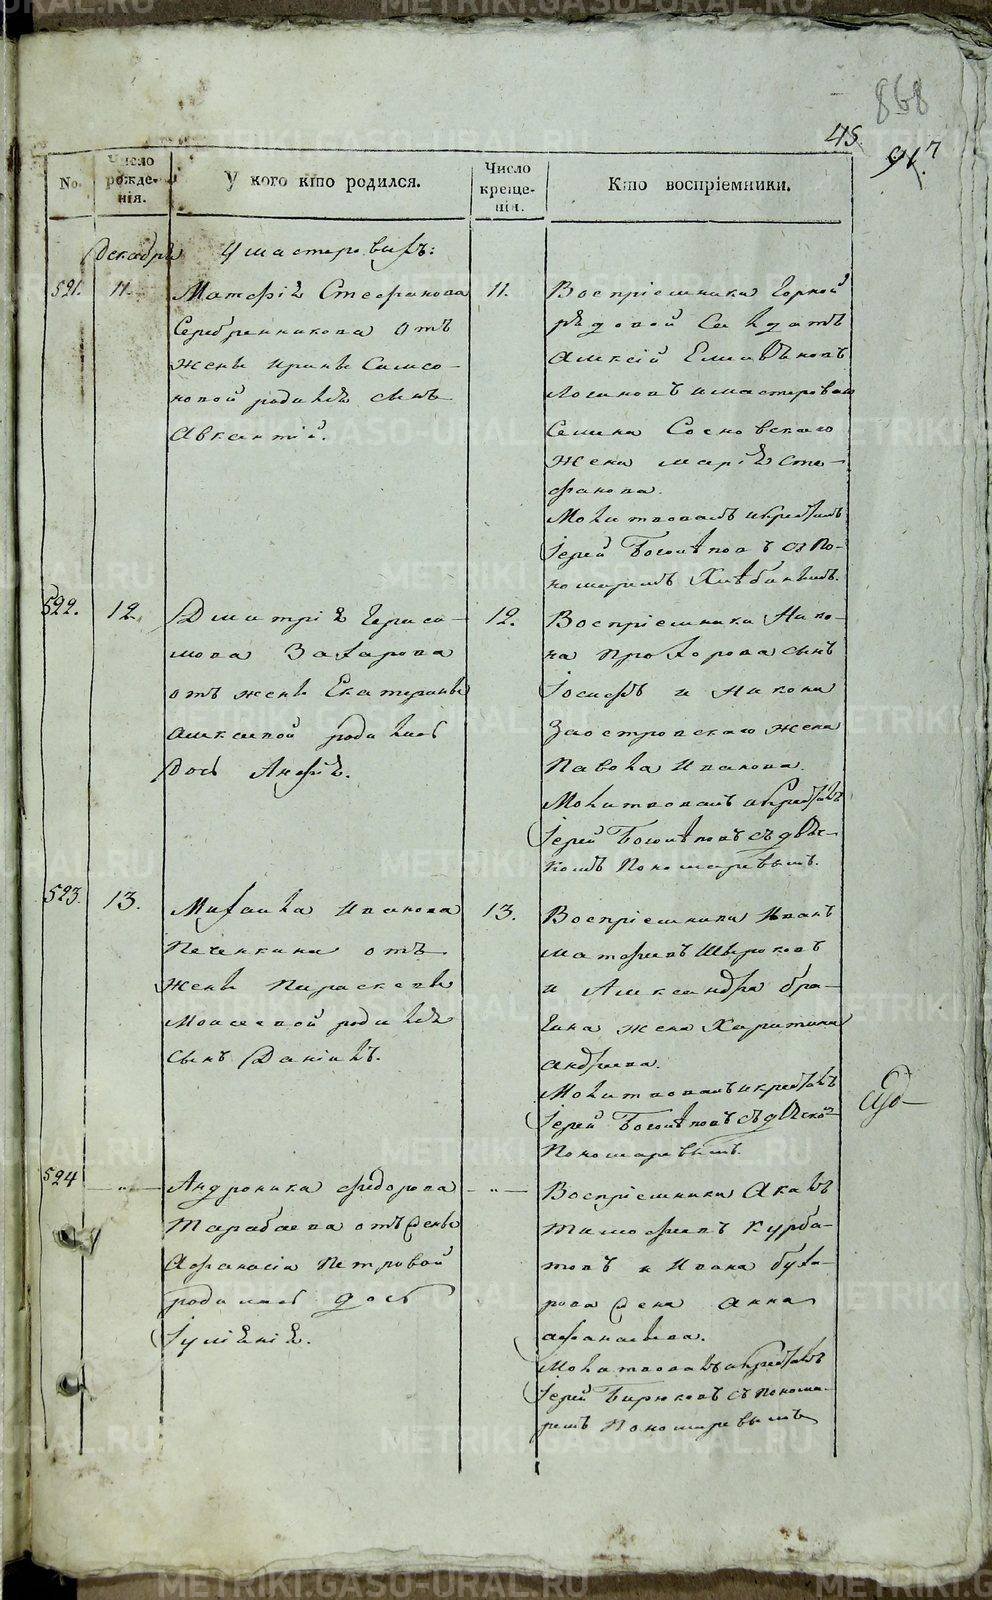 868
45.
917.
No.
Число рожденія.
У кого кто родился.
Число крещенія.
Кто воспріемники.
Декабря
Умастеровыхъ:
521.
11.
Матѳія Стефанова
Серебренникова отъ
жены Ирины Самсо-
новой родился сынъ
Авксентій.
11.
Воспріемники Горной
рядовой Салдатъ
Алексій
Логиновъ имастероваго
Семена Сосновскаго
жена Марія Сте-
фанова.
Молитвовалъ икрестилъ
Іерей Боголѣповъ съ По-
номаремъ Хлѣбинымъ.
522.
12.
Дмитрія Гераси-
мова Захарова
отъ жены Екатерины
Алексѣевой родилась
дочь Анфія.
12.
Воспріемники Нико-
на Прохорова сынъ
Іосифъ и Никона
Заостровскаго жена
Павола Иванова.
Молитвовалъ икрестилъ
Іерей Боголѣповъ съ дья-
комъ Пономаревымъ.
523.
13.
Михаила Иванова
Печенкина отъ
жены Параскевы
Моисеевой родился
сынъ Даніилъ.
13.
Воспріемники Иванъ
Матѳеевъ Широковъ
и Александра Бра-
гина жена Харитина
Андреева.
Молитвовалъ икрестилъ
Іерей Боголѣповъ съ дьяком
Пономаревымъ.
524
-"-
Андроника Федорова
Тарабаева отъ жены
Афанасіи Петровой
родилась дочь
Іуліанія.
-"-
Воспріемники Акакъ
Тимофеевъ Курба-
товъ и Ивана Буха-
рова жена Анна
Афанасьева.
Молитвовалъ икрестилъ
Іерей Бирюковъ съ понома-
ремъ Пономаревымъ
METRIKI.GASO-URAL.RU